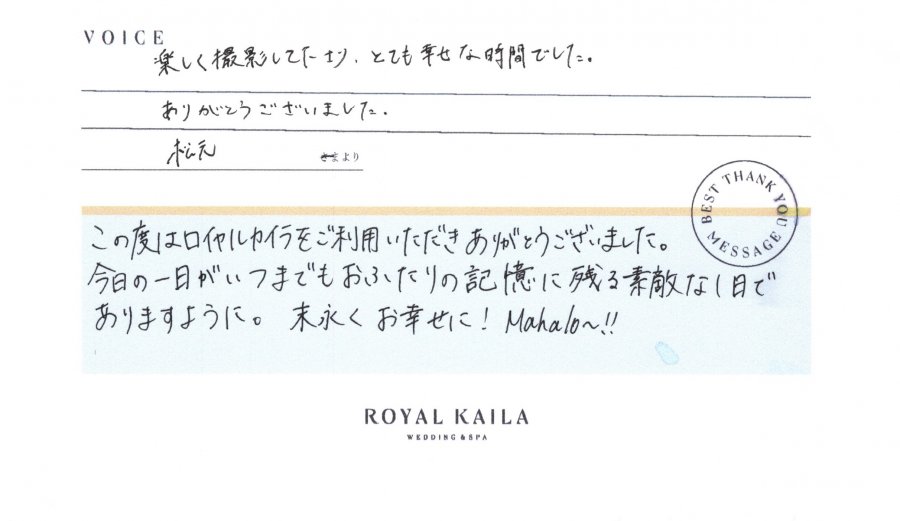 VOICE
楽しく撮影してたせり、とても幸せな時間でした。
ありがとうございました。
松元 さまより
BEST THANK YOU MESSAGE
この度はロイヤルカイラをご利用いただきありがとうございました。
今日の一日がいつまでもおふたりの記憶に残る素敵な1日で
ありますように。 末永くお幸せに! Mahalo〜!!
ROYAL KAILA
WEDDING & SPA